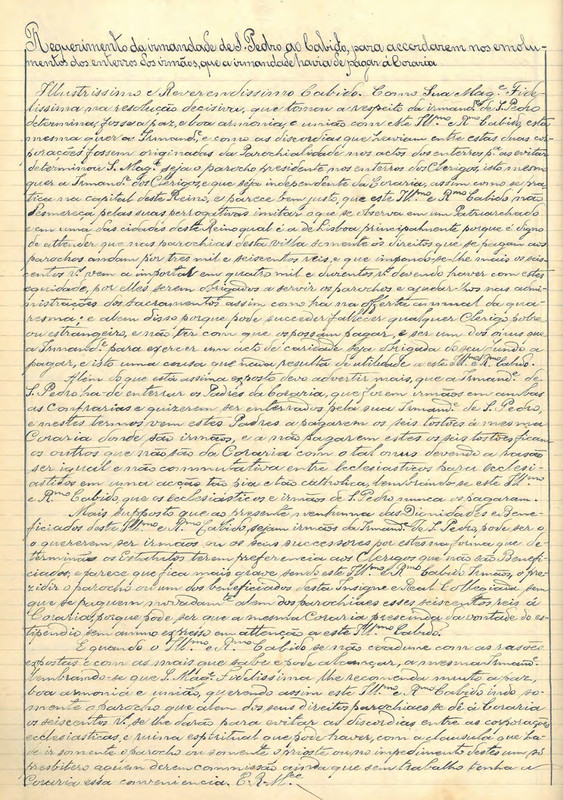 Requerimento da irmandade de S. Pedro ao Cabido, para accordarem nos emolu-
mentos dos enterros dos irmãos, que a irmandade havia de pagar á Coraria
Illustrissimo e Reverendissimo Cabido. Como Sua Mag.e Fide-
lissima na resolução decisiva, que tomou a respeito da irmand.e de S. Pedro
determina, fosse a paz, e boa armonia, e união com este Ill.mo e R.mo Cabido, esta
mesma quer a Irmand.e, e como as discordias que haviam entre estas duas cor-
porações fossem originadas da Parochialidade nos actos dos enterros p.a as evitar
determinou S. Mag.e seja o parocho presidente nos enterros dos Clerigos, isto mesmo
quer a Irmand.e dos Clerigos, e que seja independente da Coraria, assim como se pra-
tica na capital deste Reino, e parece bem justo, que este Ill.mo e R.mo Cabido não
desmereça pelas suas perrogativas imitar o que se observa em um Patriarchado
e em uma das cidades deste Reino qual é a de Lisboa principalmente porque é digno
de attender que nas parochias desta villa somente os direitos que se pagam aos
parochos andam por tres mil e seiscentos reis, e que impondo-se-lhe mais os seis-
centos r.s vem a importal em quatro mil e duzentos r.s devendo haver com estes
equidade, por elles serem obrigados a servir os parochos e ajudar-lhos nas admi-
nistrações dos Sacramentos assim como ha na offerta annual da qua-
resma: e alem disso porque pode suceder fallecer qualquer Clerigo pobre
ou estrangeiro, e não ter com que os possam pagar, e ser um dos onus que
a Irmand.e para exercer um acto de caridade seja obrigada do seu fundo a
pagar, e isto uma cousa que nada resulta de utilidade a este Ill.mo R.mo Cabido.
Alem do que está assima exposto devo advertir mais, que a Irmand.e de
S. Pedro ha de enterrar os Padres da Coraria, que forem irmãos em ambas
as confrarias e quizerem ser enterrados pela sua Irmand.e de S. Pedro,
e nestes termos vem estes Padres a pagarem os seis tostões á mesma
Coraria donde são irmãos, e a não pagarem estes os seis tostões ficam
os outros que não são da Coraria com o tal onus devendo a rasão
ser igual e não commutativa entre ecclesiasticos para eccle­si-
asticos em uma acção tão pia e tão catholica, lembrando-se este Ill.mo
e R.mo Cabido, que os ecclesiasticos e irmãos de S. Pedro nunca os pagaram.
Mais supposto que ao presente nenhuma das Dignidades e Bene-
ficiados deste Ill.mo e R.mo Cabido, sejam irmãos da Irmand.e de S. Pedro, pode ser o
o quererem ser irmãos ou os seus successores por esta na forma que de-
terminão os Estatutos terem preferencia aos Clerigos que não são Benefi-
ciados, e parece que fica mais grave sendo este Ill.mo e R.mo Cabido Irmãos, o pre-
zidir o parocho ou um dos beneficiados desta Insigne e Real Collegiada sem
que se paguem alem dos parochiaes esses seiscentos reis á
Coraria, porque pode ser que a mesma Coraria prescinda da vontade do es-
tipendio sem animo expresso em attenção a este Ill.mo Cabido.
E quando o Ill.mo e R.mo Cabido se não coadune com as rasões
expostas e com as mais que sabe e póde alcançar, a mesma Irmand.e
lembrando-se que S. Mag.e Fidelissima lhe recomenda muito a paz,
boa armonia e união, querendo assim este Ill.mo e R.mo Cabido indo so-
mente o parocho que alem dos seus direitos parochiaes se dê á Coraria
os seiscentos r.s se lhe darão para evitar as discordias entre as corporações
ecclesiasticas, e ruina espiritual que póde haver, com a clausula que ha-
de ir somente o parocho ou somente o prioste ou no impedimento destes um
presbitero a quem derem commissão ainda que sem trabalho tenha a
Coraria essa conveniencia. E. R. M.ce